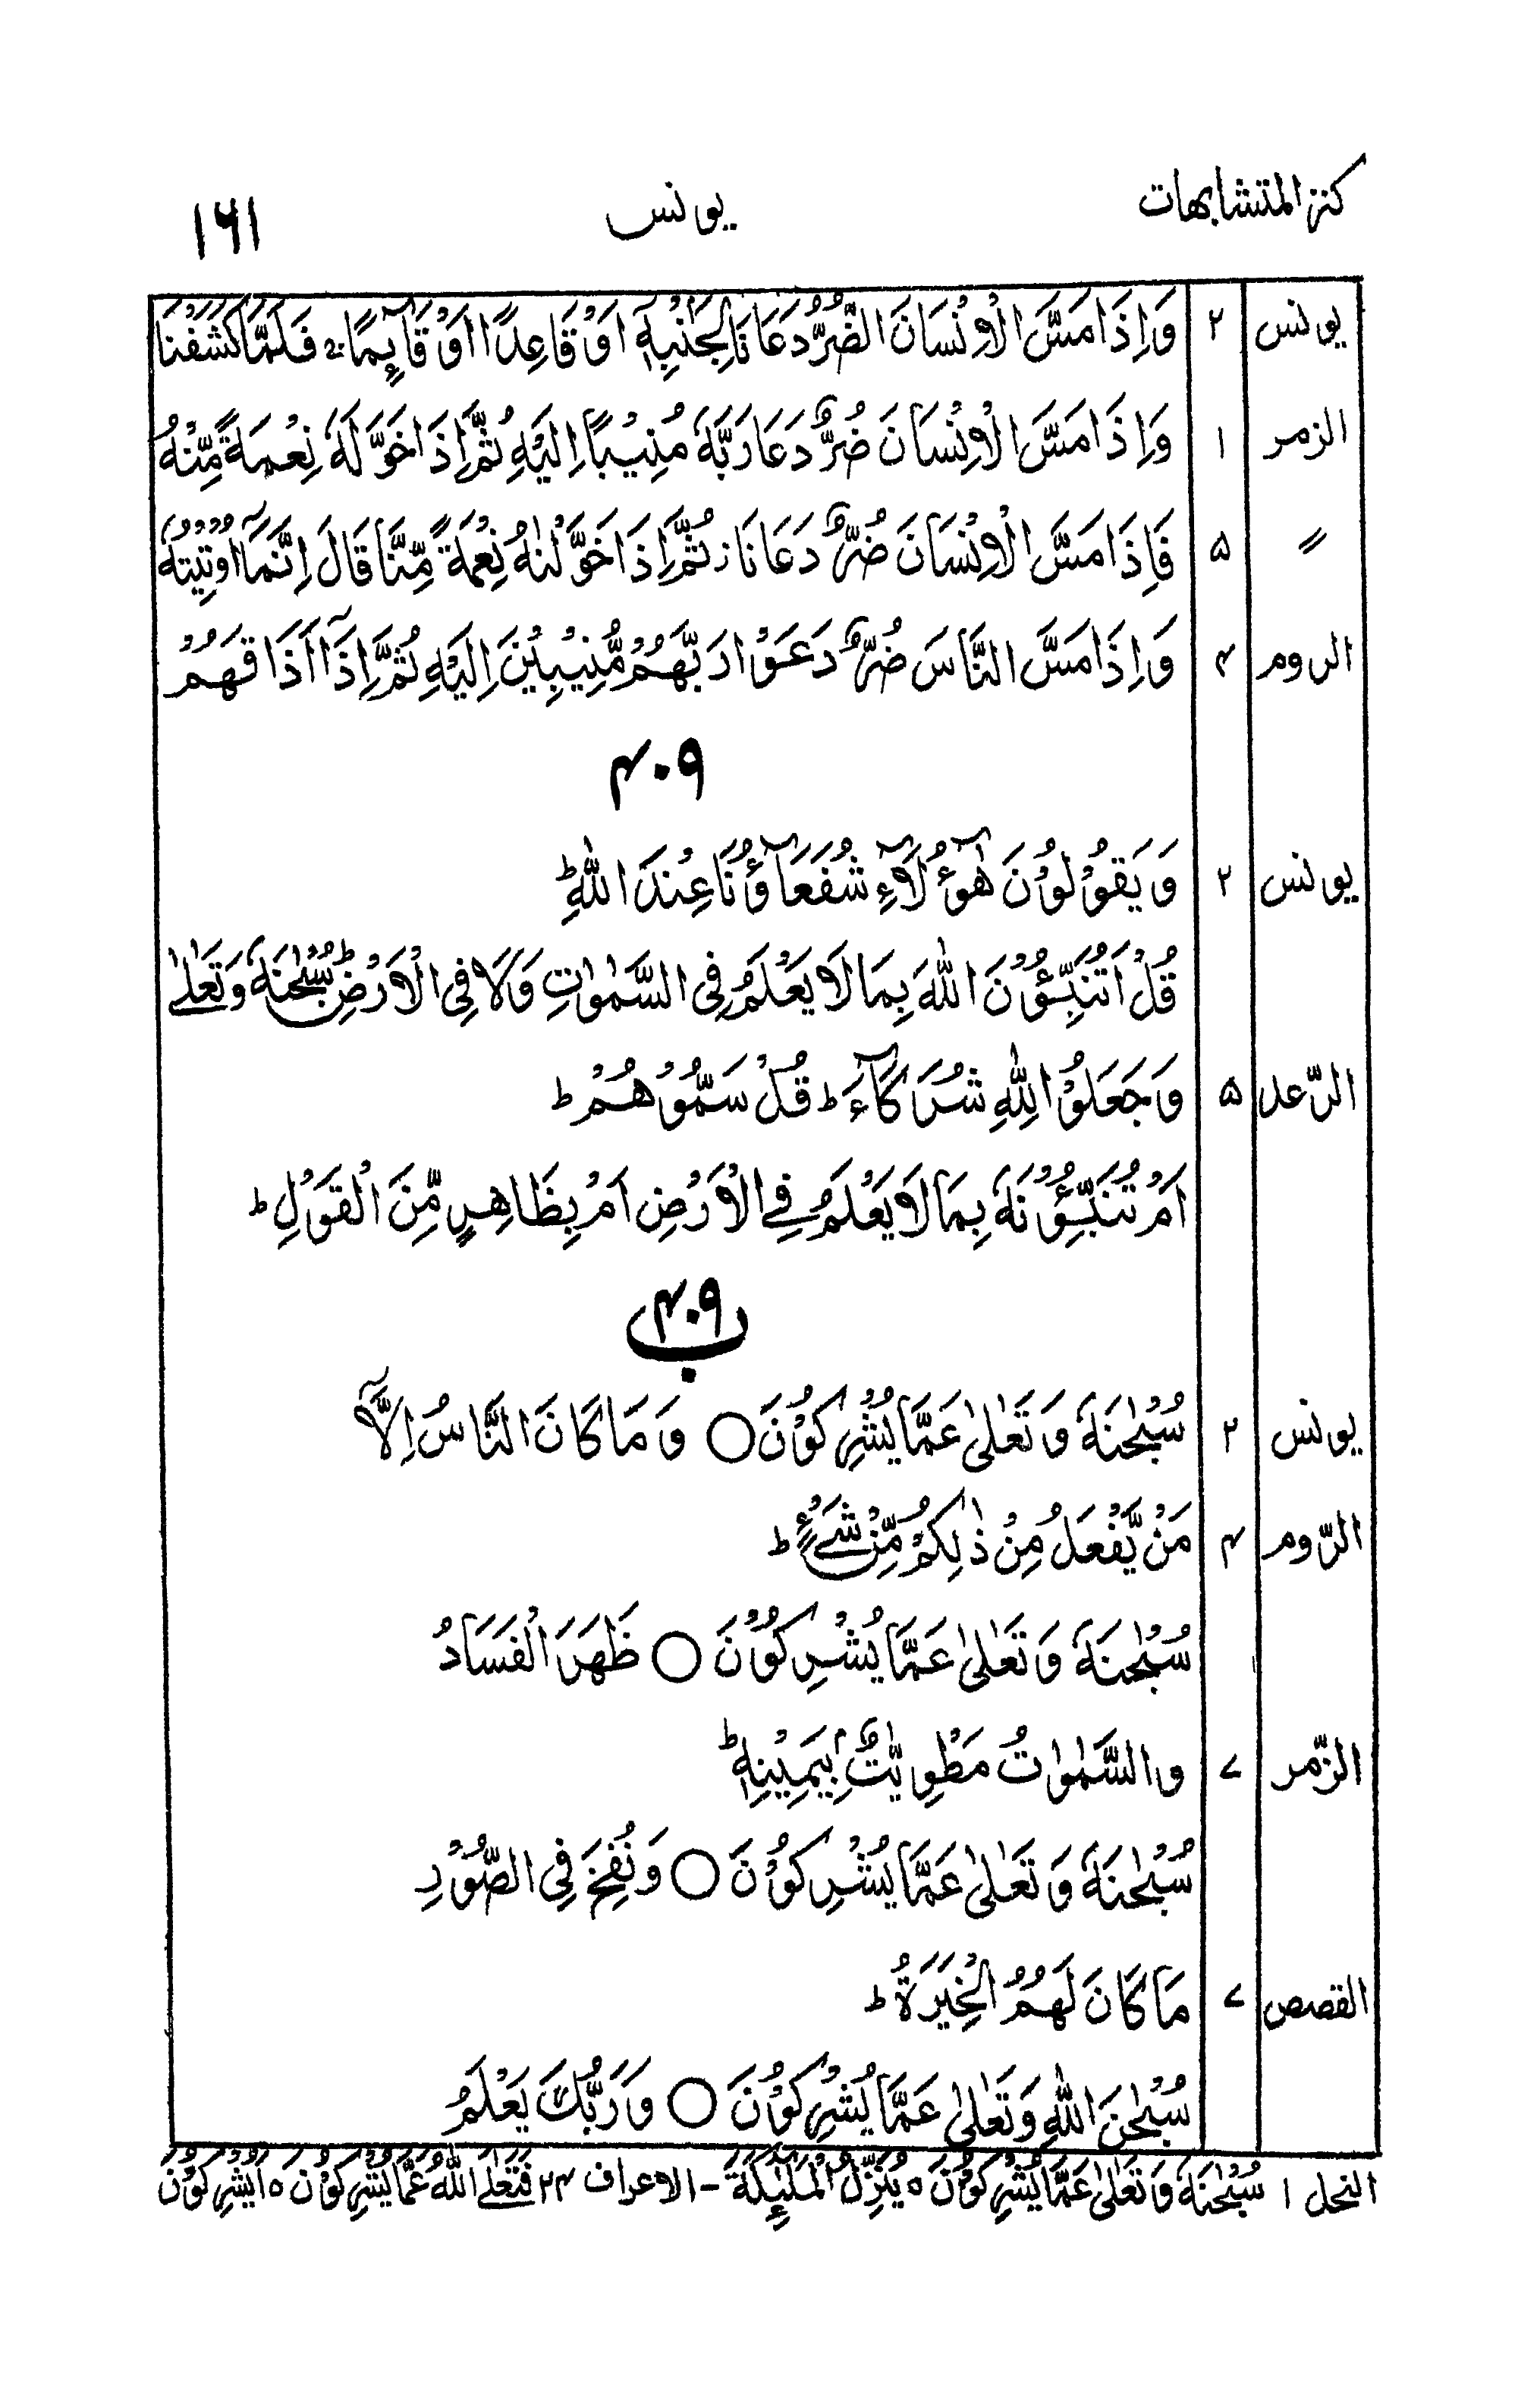 كنز المتشابهات يونس ١٦١
يونس ٢ وَاِذَا مَسَّ الْاِنْسَانَ الضُّرُّ دَعَانَا لِجَنْۢبِهٖۤ اَوْ قَاعِدًا اَوْ قَآىِٕمًا ۚ فَلَمَّا كَشَفْنَا
الزمر ١ وَاِذَا مَسَّ الْاِنْسَانَ ضُرٌّ دَعَا رَبَّهٗ مُنِيْبًا اِلَيْهِ ثُمَّ اِذَا خَوَّلَهٗ نِعْمَةً مِّنْهُ
〃 ۵ فَاِذَا مَسَّ الْاِنْسَانَ ضُرٌّ دَعَانَا ز ثُمَّ اِذَا خَوَّلْنٰهُ نِعْمَةً مِّنَّا قَالَ اِنَّمَاۤ اُوْتِيْتُهٗ
الروم ۴ وَاِذَا مَسَّ النَّاسَ ضُرٌّ دَعَوْا رَبَّهُمْ مُّنِيْبِيْنَ اِلَيْهِ ثُمَّ اِذَاۤ اَذَاقَهُمْ
۴۰۹
يونس ٢ وَيَقُوْلُوْنَ هٰۤؤُلَآءِ شُفَعَآؤُنَا عِنْدَ اللّٰهِ ؕ
قُلْ اَتُنَبِّـُٔوْنَ اللّٰهَ بِمَا لَا يَعْلَمُ فِى السَّمٰوٰتِ وَلَا فِى الْاَرْضِ ؕ سُبْحٰنَهٗ وَتَعٰلٰى
الرّعد ۵ وَجَعَلُوْا لِلّٰهِ شُرَكَآءَ ؕ قُلْ سَمُّوْهُمْ ؕ
اَمْ تُنَبِّـُٔوْنَهٗ بِمَا لَا يَعْلَمُ فِے الْاَرْضِ اَمْ بِظَاهِرٍ مِّنَ الْقَوْلِ ؕ
۴۰۹ ب
يونس ٢ سُبْحٰنَهٗ وَتَعٰلٰى عَمَّا يُشْرِكُوْنَ ○ وَمَا كَانَ النَّاسُ اِلَّاۤ
الرّوم ۴ مَنْ يَّفْعَلُ مِنْ ذٰلِكُمْ مِّنْ شَےْءٍ ؕ
سُبْحٰنَهٗ وَتَعٰلٰى عَمَّا يُشْرِكُوْنَ ○ ظَهَرَ الْفَسَادُ
الزّمر ٧ والسَّمٰوٰتُ مَطْوِيّٰتٌۢ بِيَمِيْنِهٖ ؕ
سُبْحٰنَهٗ وَتَعٰلٰى عَمَّا يُشْرِكُوْنَ ○ وَنُفِخَ فِى الصُّوْرِ
القصص ٧ مَا كَانَ لَهُمُ الْخِيَرَةُ ؕ
سُبْحٰنَ اللّٰهِ وَتَعٰلٰى عَمَّا يُشْرِكُوْنَ ○ وَرَبُّكَ يَعْلَمُ
النحل ١ سُبْحٰنَهٗ وَتَعٰلٰى عَمَّا يُشْرِكُوْنَ ٥ يُنَزِّلُ الْمَلٰٓىِٕكَةَ - الاعراف ٢۴ فَتَعٰلَے اللّٰهُ عَمَّا يُشْرِكُوْنَ ٥ اَيُشْرِكُوْنَ